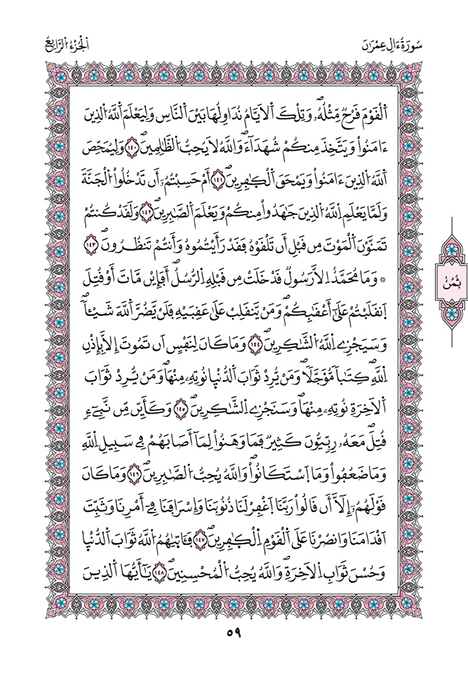 سُورَةُ ءَالِ عِمْرَٰنَ
اَلْجُزْءُ اُلرَّابِعُ
اَلْقَوْمَ قَرْحٌ مِّثْلُهُۥۖ وَتِلْكَ اَلَايَّامُ نُدَاوِلُهَا بَيْنَ اَلنَّاسِ وَلِيَعْلَمَ اَللَّهُ اُلذِينَ
ءَامَنُواْ وَيَتَّخِذَ مِنكُمْ شُهَدَآءَۖ وَاللَّهُ لَا يُحِبُّ اُلظَّٰلِمِينَۖ ١٤٠ وَلِيُمَحِّصَ
اَللَّهُ اُلذِينَ ءَامَنُواْ وَيَمْحَقَ اَلْكٰ۪فِرِينَۖ ١٤١ أَمْ حَسِبْتُمُۥٓ أَن تَدْخُلُواْ اُلْجَنَّةَ
وَلَمَّا يَعْلَمِ اِللَّهُ اُلذِينَ جَٰهَدُواْ مِنكُمْ وَيَعْلَمَ اَلصَّٰبِرِينَۖ ١٤٢ وَلَقَدْ كُنتُمْ
تَمَنَّوْنَ اَلْمَوْتَ مِن قَبْلِ أَن تَلْقَوْهُ فَقَدْ رَأَيْتُمُوهُ وَأَنتُمْ تَنظُرُونَۖ ١٤٣
۞ وَمَا مُحَمَّدٌ اِلَّا رَسُولٌ قَدْ خَلَتْ مِن قَبْلِهِ اِلرُّسُلُۖ أَفَإِيْن مَّاتَ أَوْ قُتِلَ
اَنقَلَبْتُمْ عَلَىٰٓ أَعْقَٰبِكُمْۖ وَمَنْ يَّنقَلِبْ عَلَىٰ عَقِبَيْهِ فَلَنْ يَّضُرَّ اَللَّهَ شَيْـٔاًۖ
وَسَيَجْزِے اِللَّهُ اُلشَّٰكِرِينَۖ ١٤٤ وَمَا كَانَ لِنَفْسٍ اَن تَمُوتَ إِلَّا بِإِذْنِ
اِللَّهِ كِتَٰباً مُّؤَجَّلاًۖ وَمَنْ يُّرِدْ ثَوَابَ اَلدُّنْيا نُوتِهِۦ مِنْهَاۖ وَمَنْ يُّرِدْ ثَوَابَ
اَلَاخِرَةِ نُوتِهِۦ مِنْهَاۖ وَسَنَجْزِے اِلشَّٰكِرِينَۖ ١٤٥ وَكَأَيِّن مِّن نَّبِيٓءٍ
قُتِلَ مَعَهُۥ رِبِّيُّونَ كَثِيرٌ فَمَا وَهَنُواْ لِمَآ أَصَابَهُمْ فِے سَبِيلِ اِللَّهِ
وَمَا ضَعُفُواْ وَمَا اَسْتَكَانُواْۖ وَاللَّهُ يُحِبُّ اُلصَّٰبِرِينَۖ ١٤٦ وَمَا كَانَ
قَوْلَهُمُۥٓ إِلَّآ أَن قَالُواْ رَبَّنَا اَغْفِرْ لَنَا ذُنُوبَنَا وَإِسْرَافَنَا فِےٓ أَمْرِنَا وَثَبِّتَ
اَقْدَامَنَا وَانصُرْنَا عَلَى اَلْقَوْمِ اِلْكٰ۪فِرِينَۖ ١٤٧ فَـَٔاتَىٰهُمُ اُللَّهُ ثَوَابَ اَلدُّنْيا
وَحُسْنَ ثَوَابِ اِلَاخِرَةِۖ وَاللَّهُ يُحِبُّ اُلْمُحْسِنِينَۖ ١٤٨ يَٰٓأَيُّهَا اَلذِينَ
ثُمُنٌ
٥٩